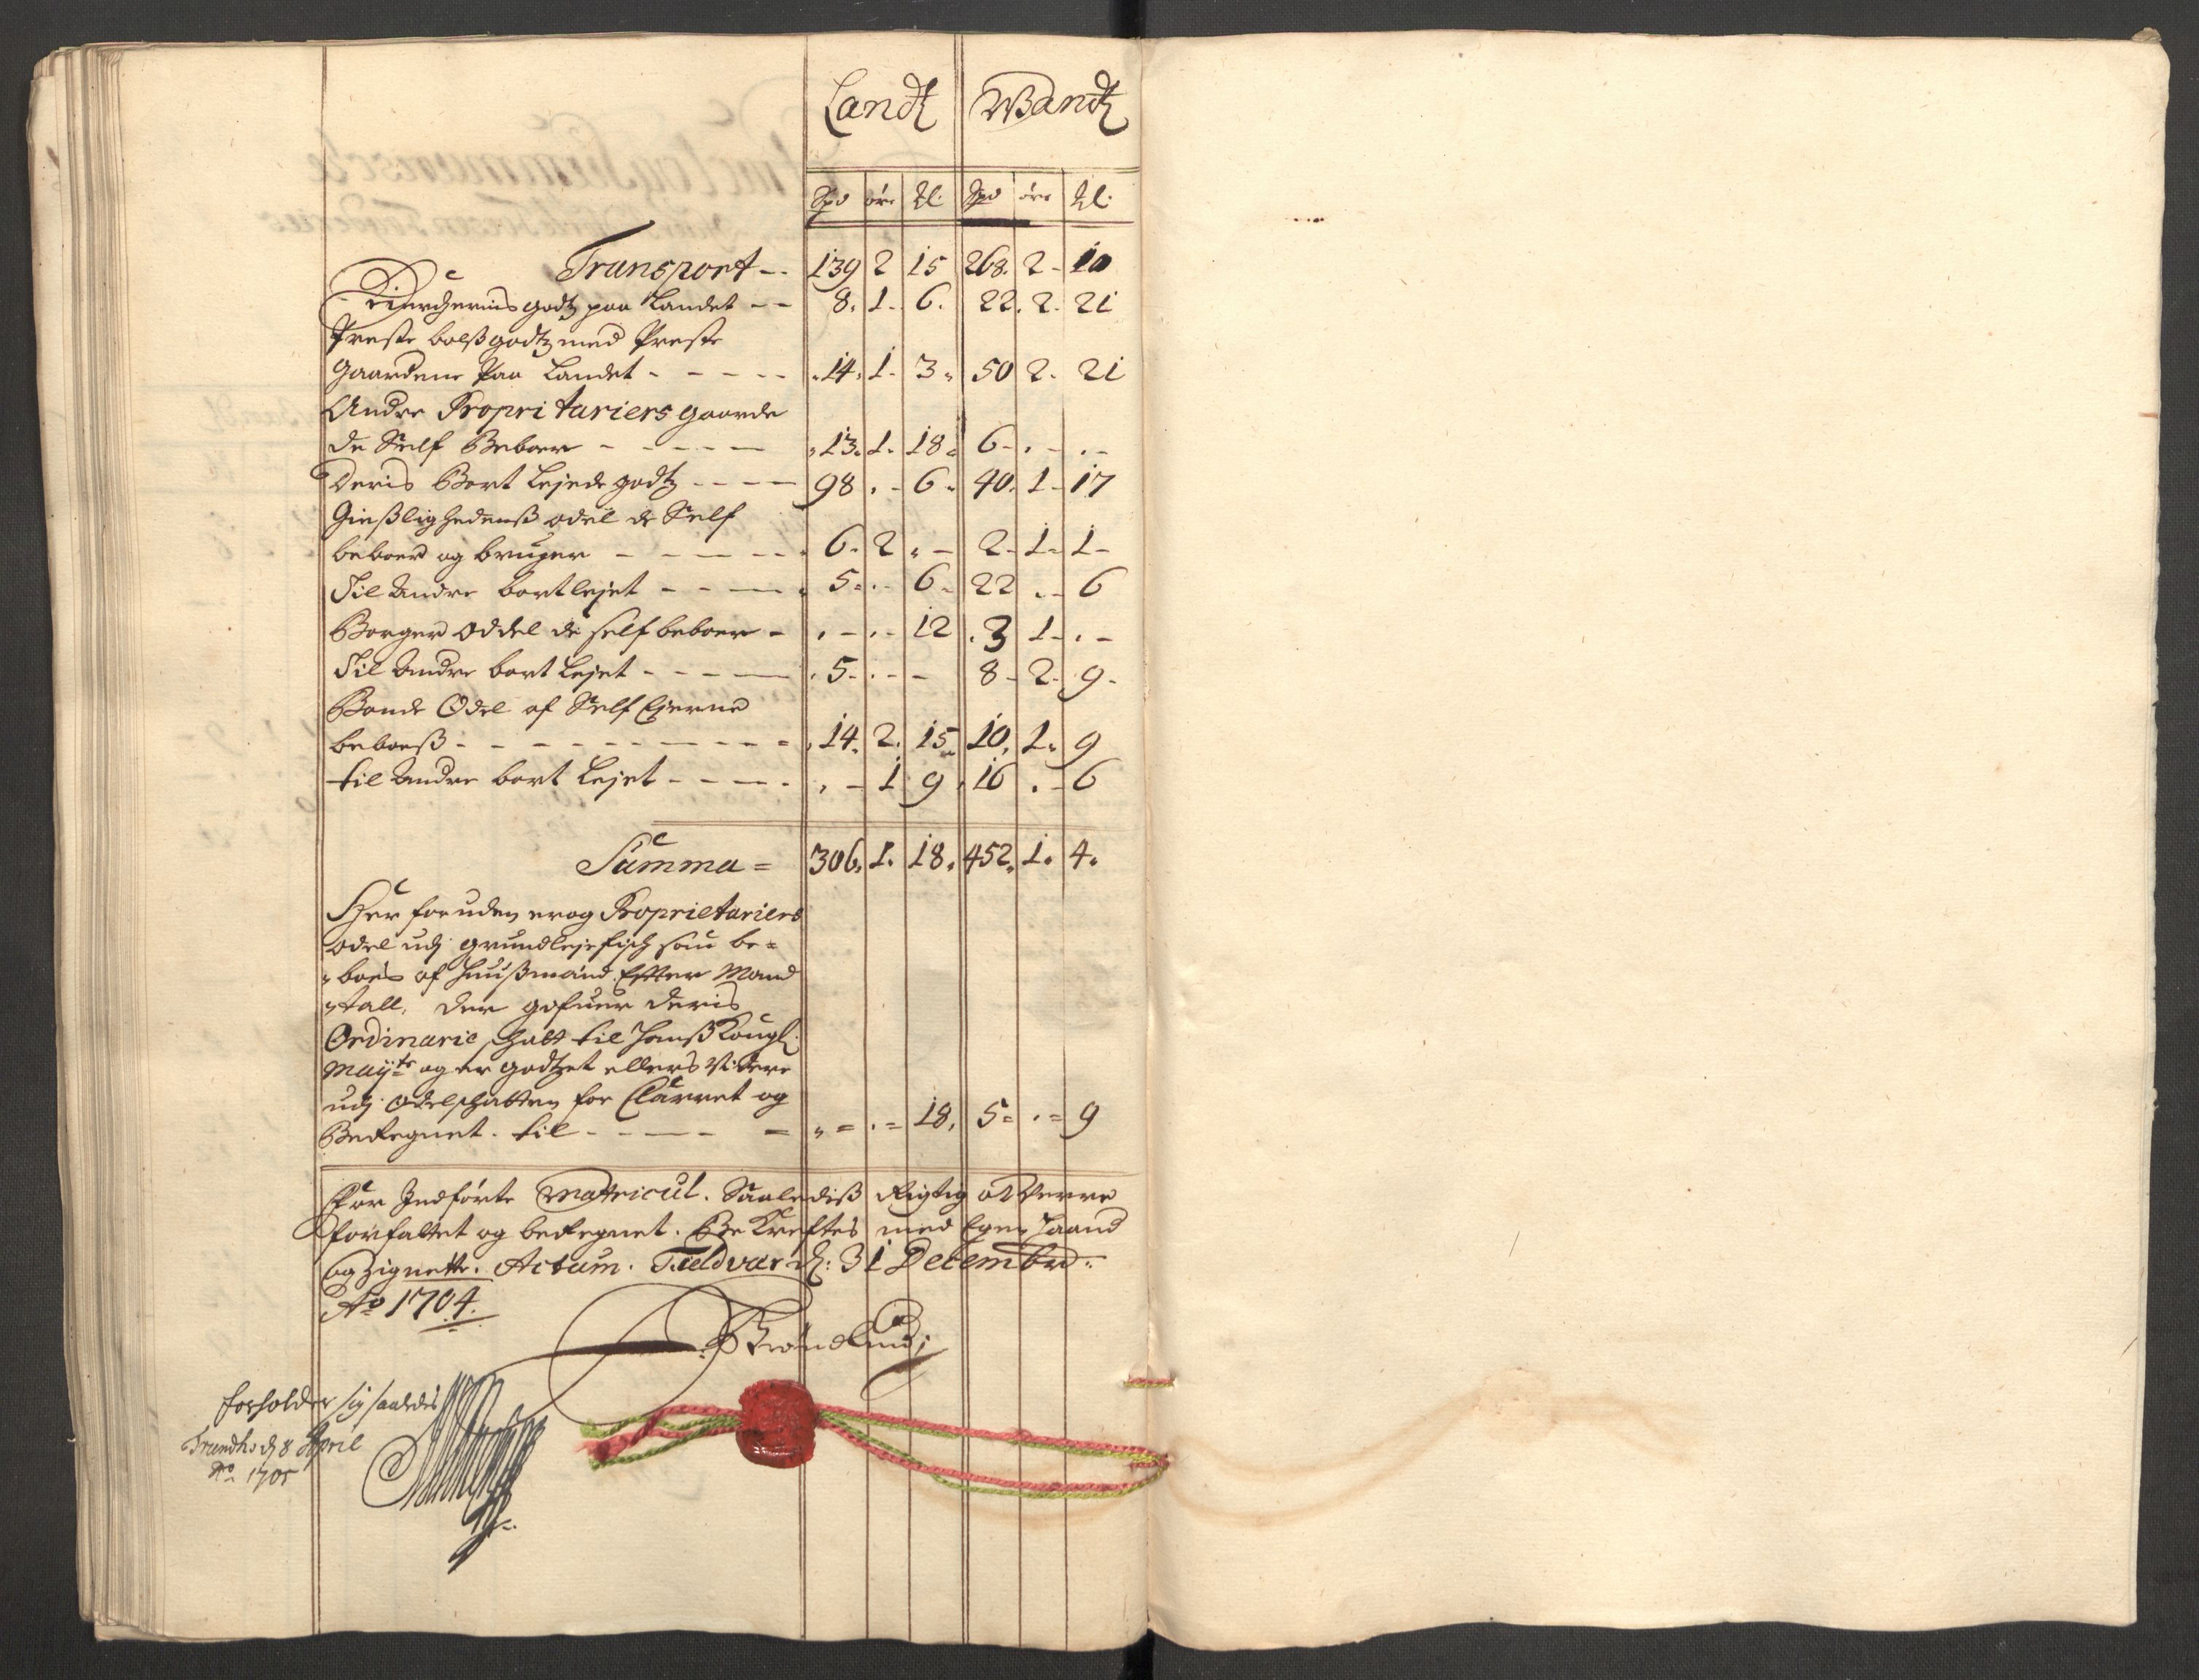 Landtz Wandtz
Spd öre Ml. Spd öre Ml.
Transport -- 139 2 15 268. 2 - 10
Kirchernis godtz paa Landet -- 8. 1. 6. 22. 2. 21
Preste bolß godtz med Preste
Gaardene Paa Landet - - - - 14. 1. 3. 50 2. 21
Andre Propritariers gaarde
de Self Beboer - - - - 13. 1. 18. 6 - . - . -
Deris Bort Lejede godtz - - - - 98 . - 6. 40. 1 - 17
Gießlighedenß odel de Self
beboer og bruger - - - - - 6. 2 . - 2 - 1 - 1 -
Til Andre bortlejet - - - - 5 - . - 6. 22 . - 6
Borger Oddel de self beboer - . - . - 12 . 3 1 - . -
Til Andre bort Lejet - - - - 5 - . - - 8 - 2 - 9 -
Bonde Odel af Self Ejerne
beboeß - - - - - - - - 14. 2. 15. 10. 1. 9
til Andre bort Lejet - - - - . - 1 9 . 16 . - 6
Summa = 306. 1. 18. 452. 1. 4.
Her foruden er og Proprietariers
odel udj grundleje fisch som be=
boes af Huußmænd Efter Mand
tall, der gifuer deris
Ordinarie schatt til Hanß Kongl:
Mayts og er godtzet ellers
udj Odelschatten for Clarret og
Beregnet. til - - - - = . = . = 18. 5 = . = 9
For Indførte Matricul. Saalediß Rigtig at Verre
forfattet og beregnet. Be Kreftes med Egen Haand
og Zignette. Actum. Tieldvar d: 31 Decembr:
Ao 1704.
forholder sig saaledis
Trundh: d 8 April
Ao 1705